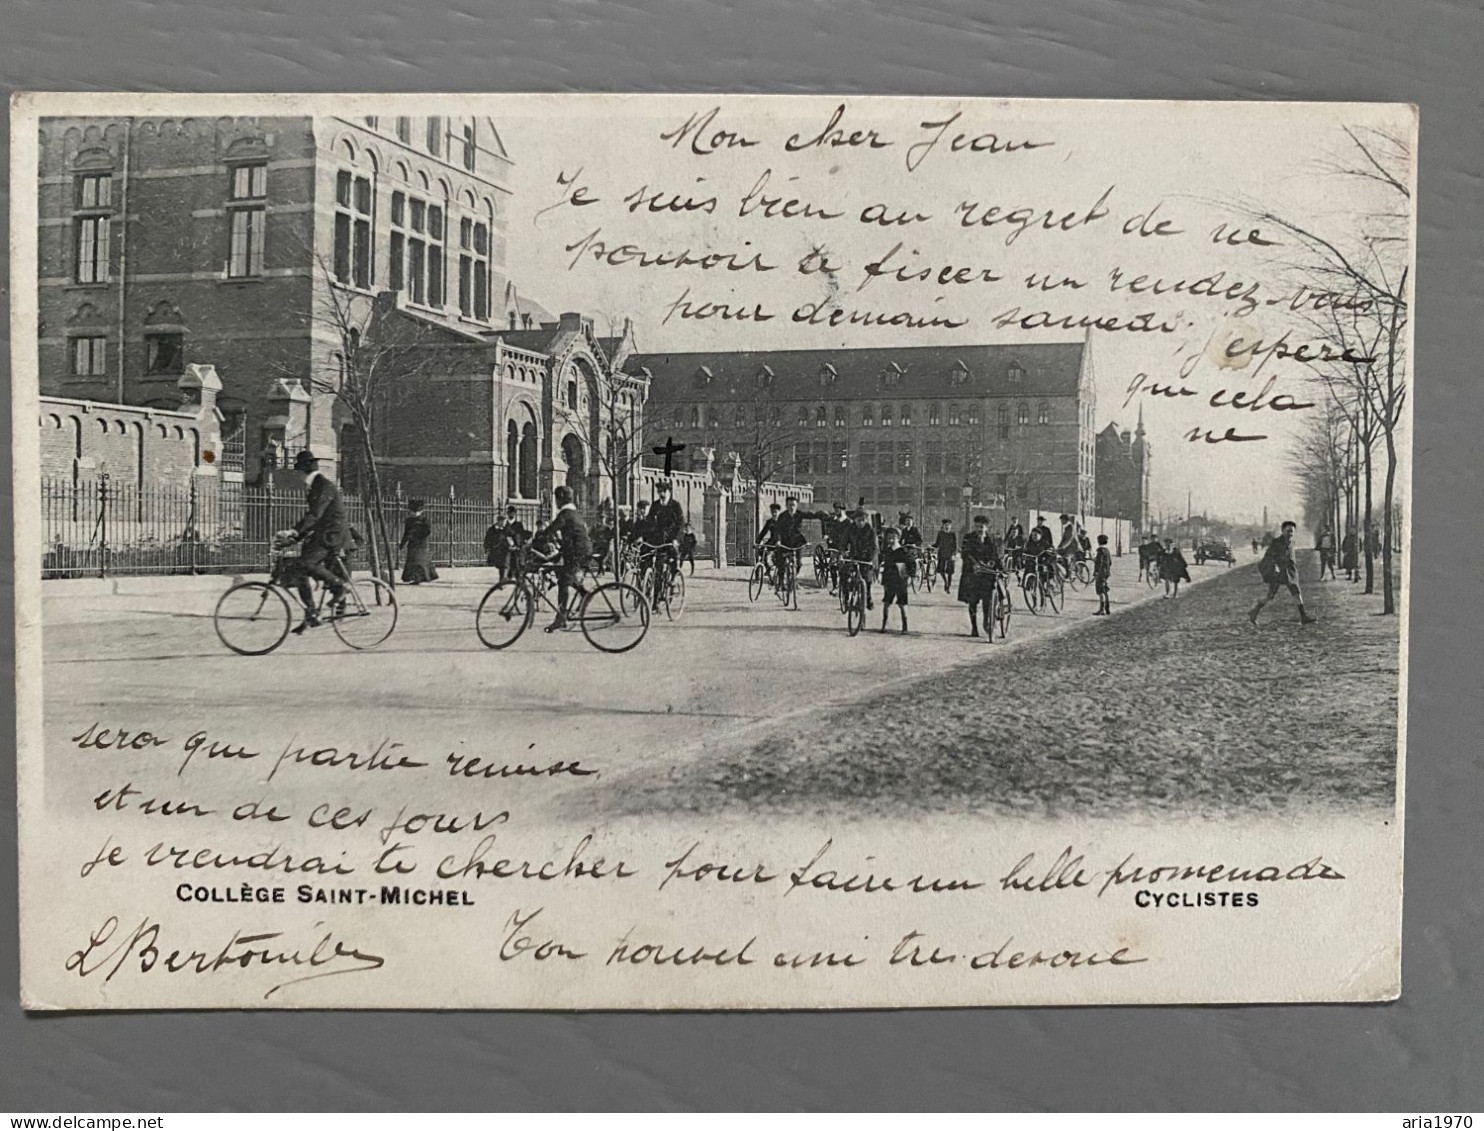 Mon cher Jean,
Je suis bien au regret de ne
pouvoir te fiscer un rendez-vous
pour demain samedi, j'espere
que cela
ne
sera que partie remise
et un de ces jours
je viendrai te chercher pour faire un belle promenade
COLLÈGE SAINT-MICHEL
CYCLISTES
Ton nouvel ami tres devoué
L
aria1970